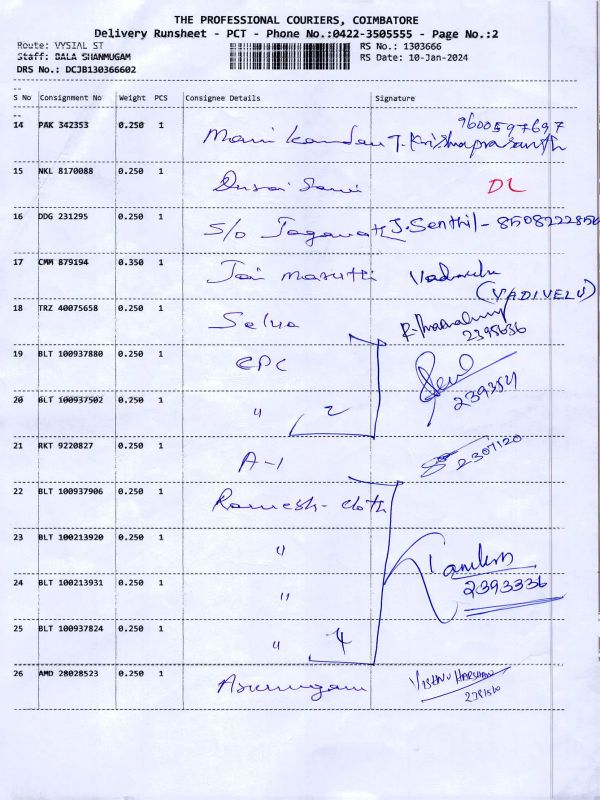 THE PROFESSIONAL COURIERS, COIMBATORE
Delivery Runsheet - PCT - Phone No.:0422-3505555 - Page No.:2
Route: VYSIAL ST RS No.: 1303666
Staff: BALA SHANMUGAM RS Date: 10-Jan-2024
DRS No.: DCJB130366602
S No Consignment No Weight PCS Consignee Details Signature
14 PAK 342353 0.250 1 Mani kandan T. Krishnaprasanth 9600597697
15 NKL 8170088 0.250 1 Durai Sami DL
16 DDG 231295 0.250 1 S/o Jaganath J. Senthil - 8508222856
17 CMM 879194 0.350 1 Jai Maruthi Vadivelu
(VADIVELU)
18 TRZ 40075658 0.250 1 Selva 2395636
19 BLT 100937880 0.250 1 CPC
20 BLT 100937502 0.250 1 " 2 239354
21 RKT 9220827 0.250 1 A-1 2307120
22 BLT 100937906 0.250 1 Ramesh-cloth
23 BLT 100213920 0.250 1 "
24 BLT 100213931 0.250 1 " 2393336
25 BLT 100937824 0.250 1 " 4
26 AMD 28028523 0.250 1 Arumugam VISHNU HARSHAN